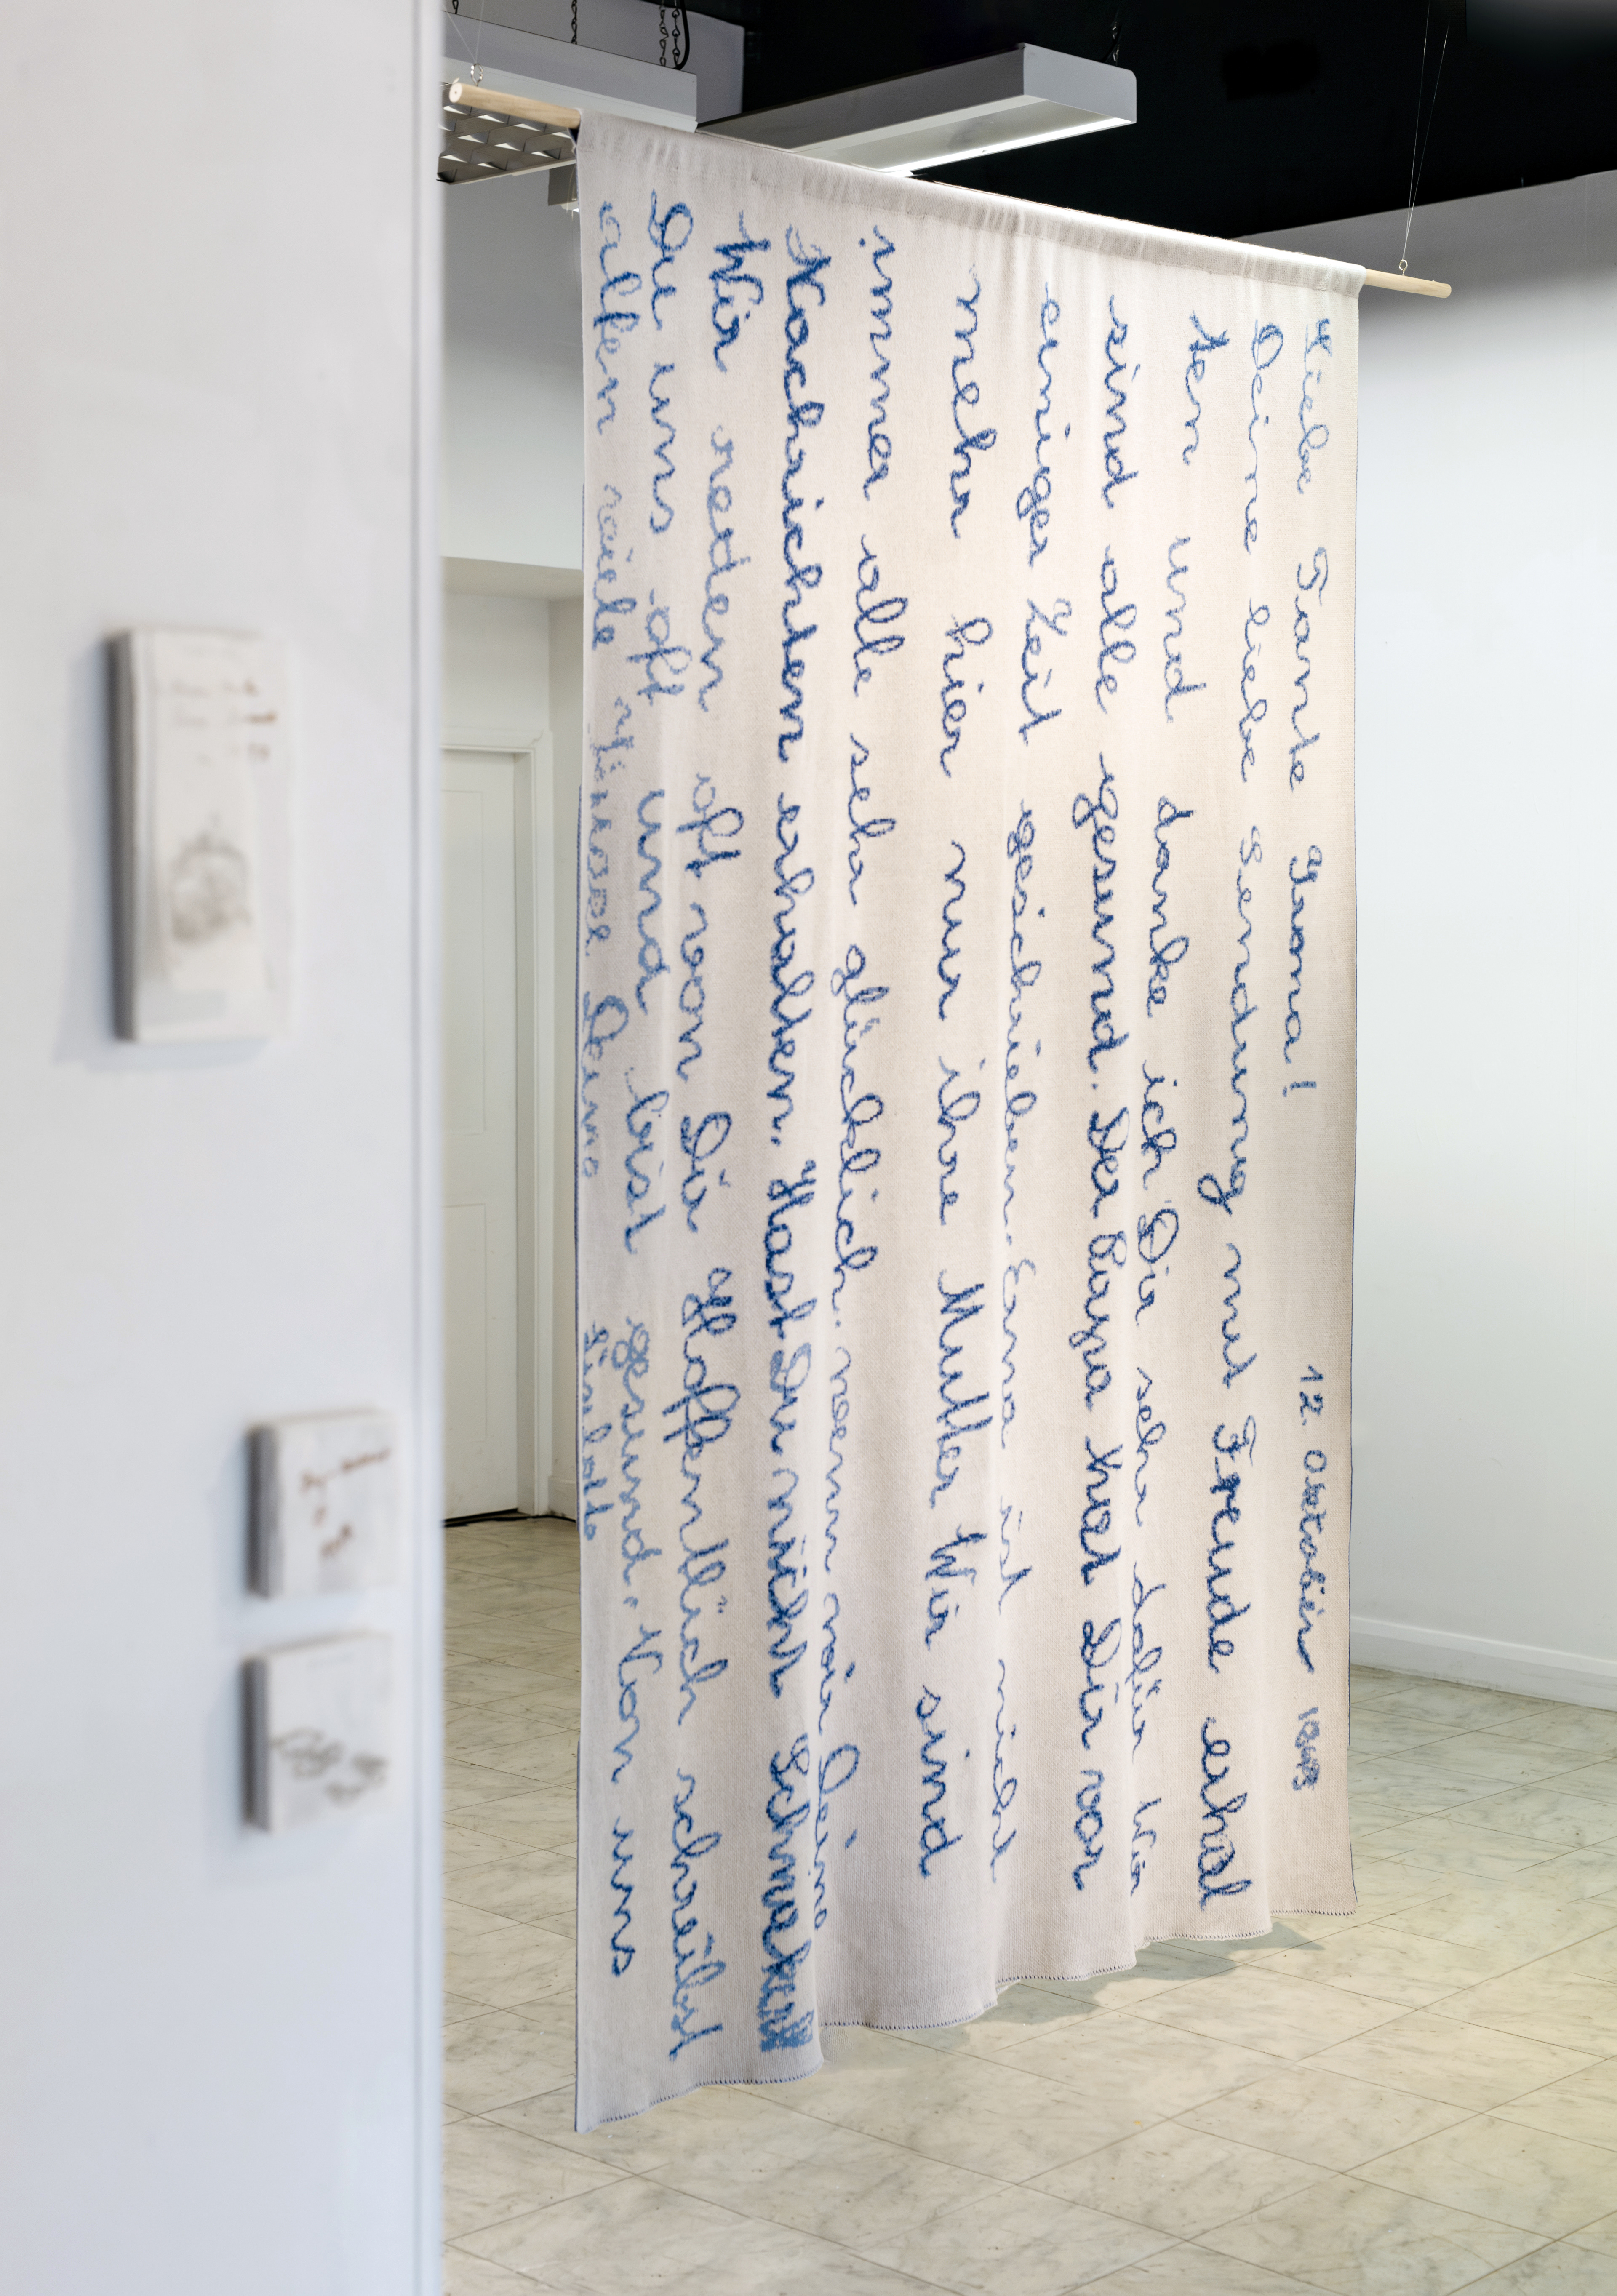 Liebe Tante 12.
Deine liebe Sendung mit Freude erhal
ten und danke ich Dir sehr dafür Wir
sind alle gesund. Der Papa hat Dir vor
einiger Zeit geschrieben. Erna ist nicht
mehr hier nur ihre Mutter Wir sind
immer alle sehr glücklich. wenn wir Deine
Nachrichten erhalten. Hast Du nicht
Wir reden oft von Dir Hoffentlich schreibst
Du uns oft und bist gesund. Von uns
allen viele Deine Liselotte